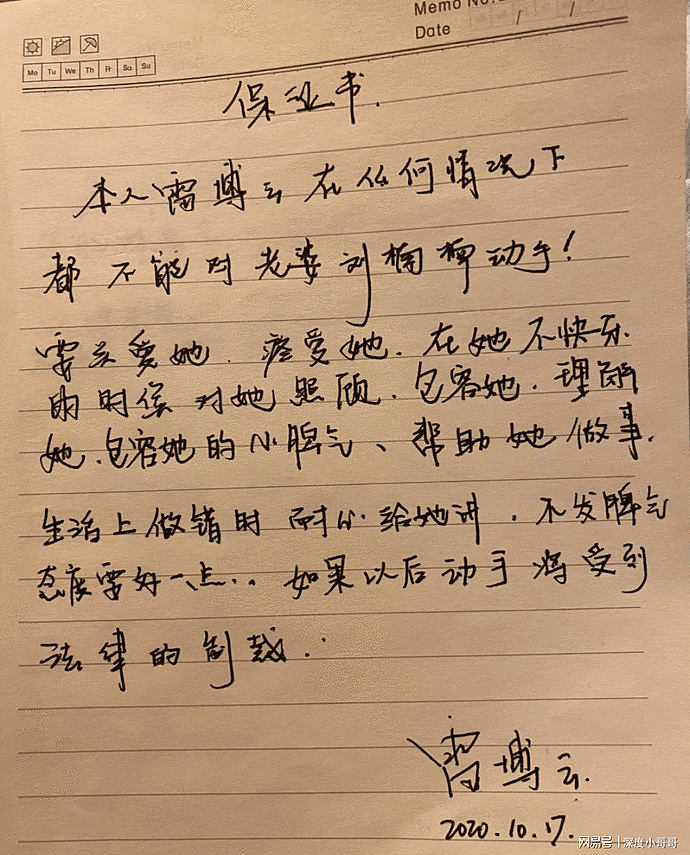 Memo No.
Date / /
Mo Tu We Th Fr Sa Su
保证书.
本人雷博云在任何情况下
都不能对老婆刘楠楠动手!
要关爱她、疼爱她、在她不快乐
的时候对她照顾、包容她、理解
她、包容她的小脾气、帮助她做事.
生活上做错时耐心给她讲,不发脾气
态度要好一点... 如果以后动手将受到
法律的制裁.
雷博云.
2020.10.17.
网易号 | 深度小哥哥